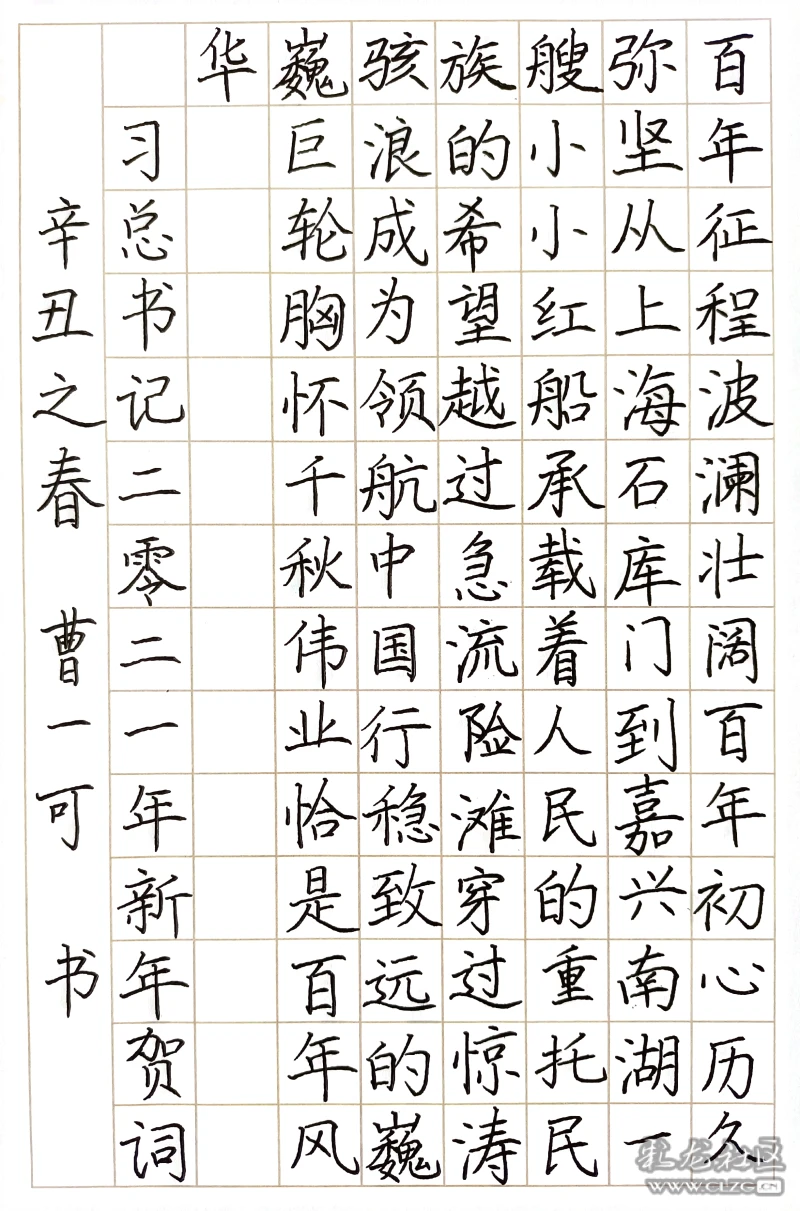 百年征程波澜壮阔百年初心历久
弥坚从上海石库门到嘉兴南湖一
艘小小红船承载着人民的重托民
族的希望越过急流险滩穿过惊涛
骇浪成为领航中国行稳致远的巍
巍巨轮胸怀千秋伟业恰是百年风
华
习总书记二零二一年新年贺词
辛丑之春 曹一可 书
彩龙社区
WWW.CLZG.CN